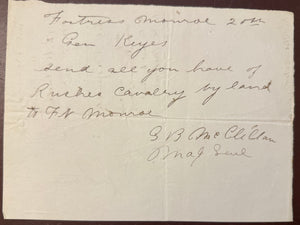 Fortress Monroe 20th
" Gen Keyes
Send all you have of
Rushes Cavalry by land
to Ft Monroe
G. B. McClellan
Maj Genl